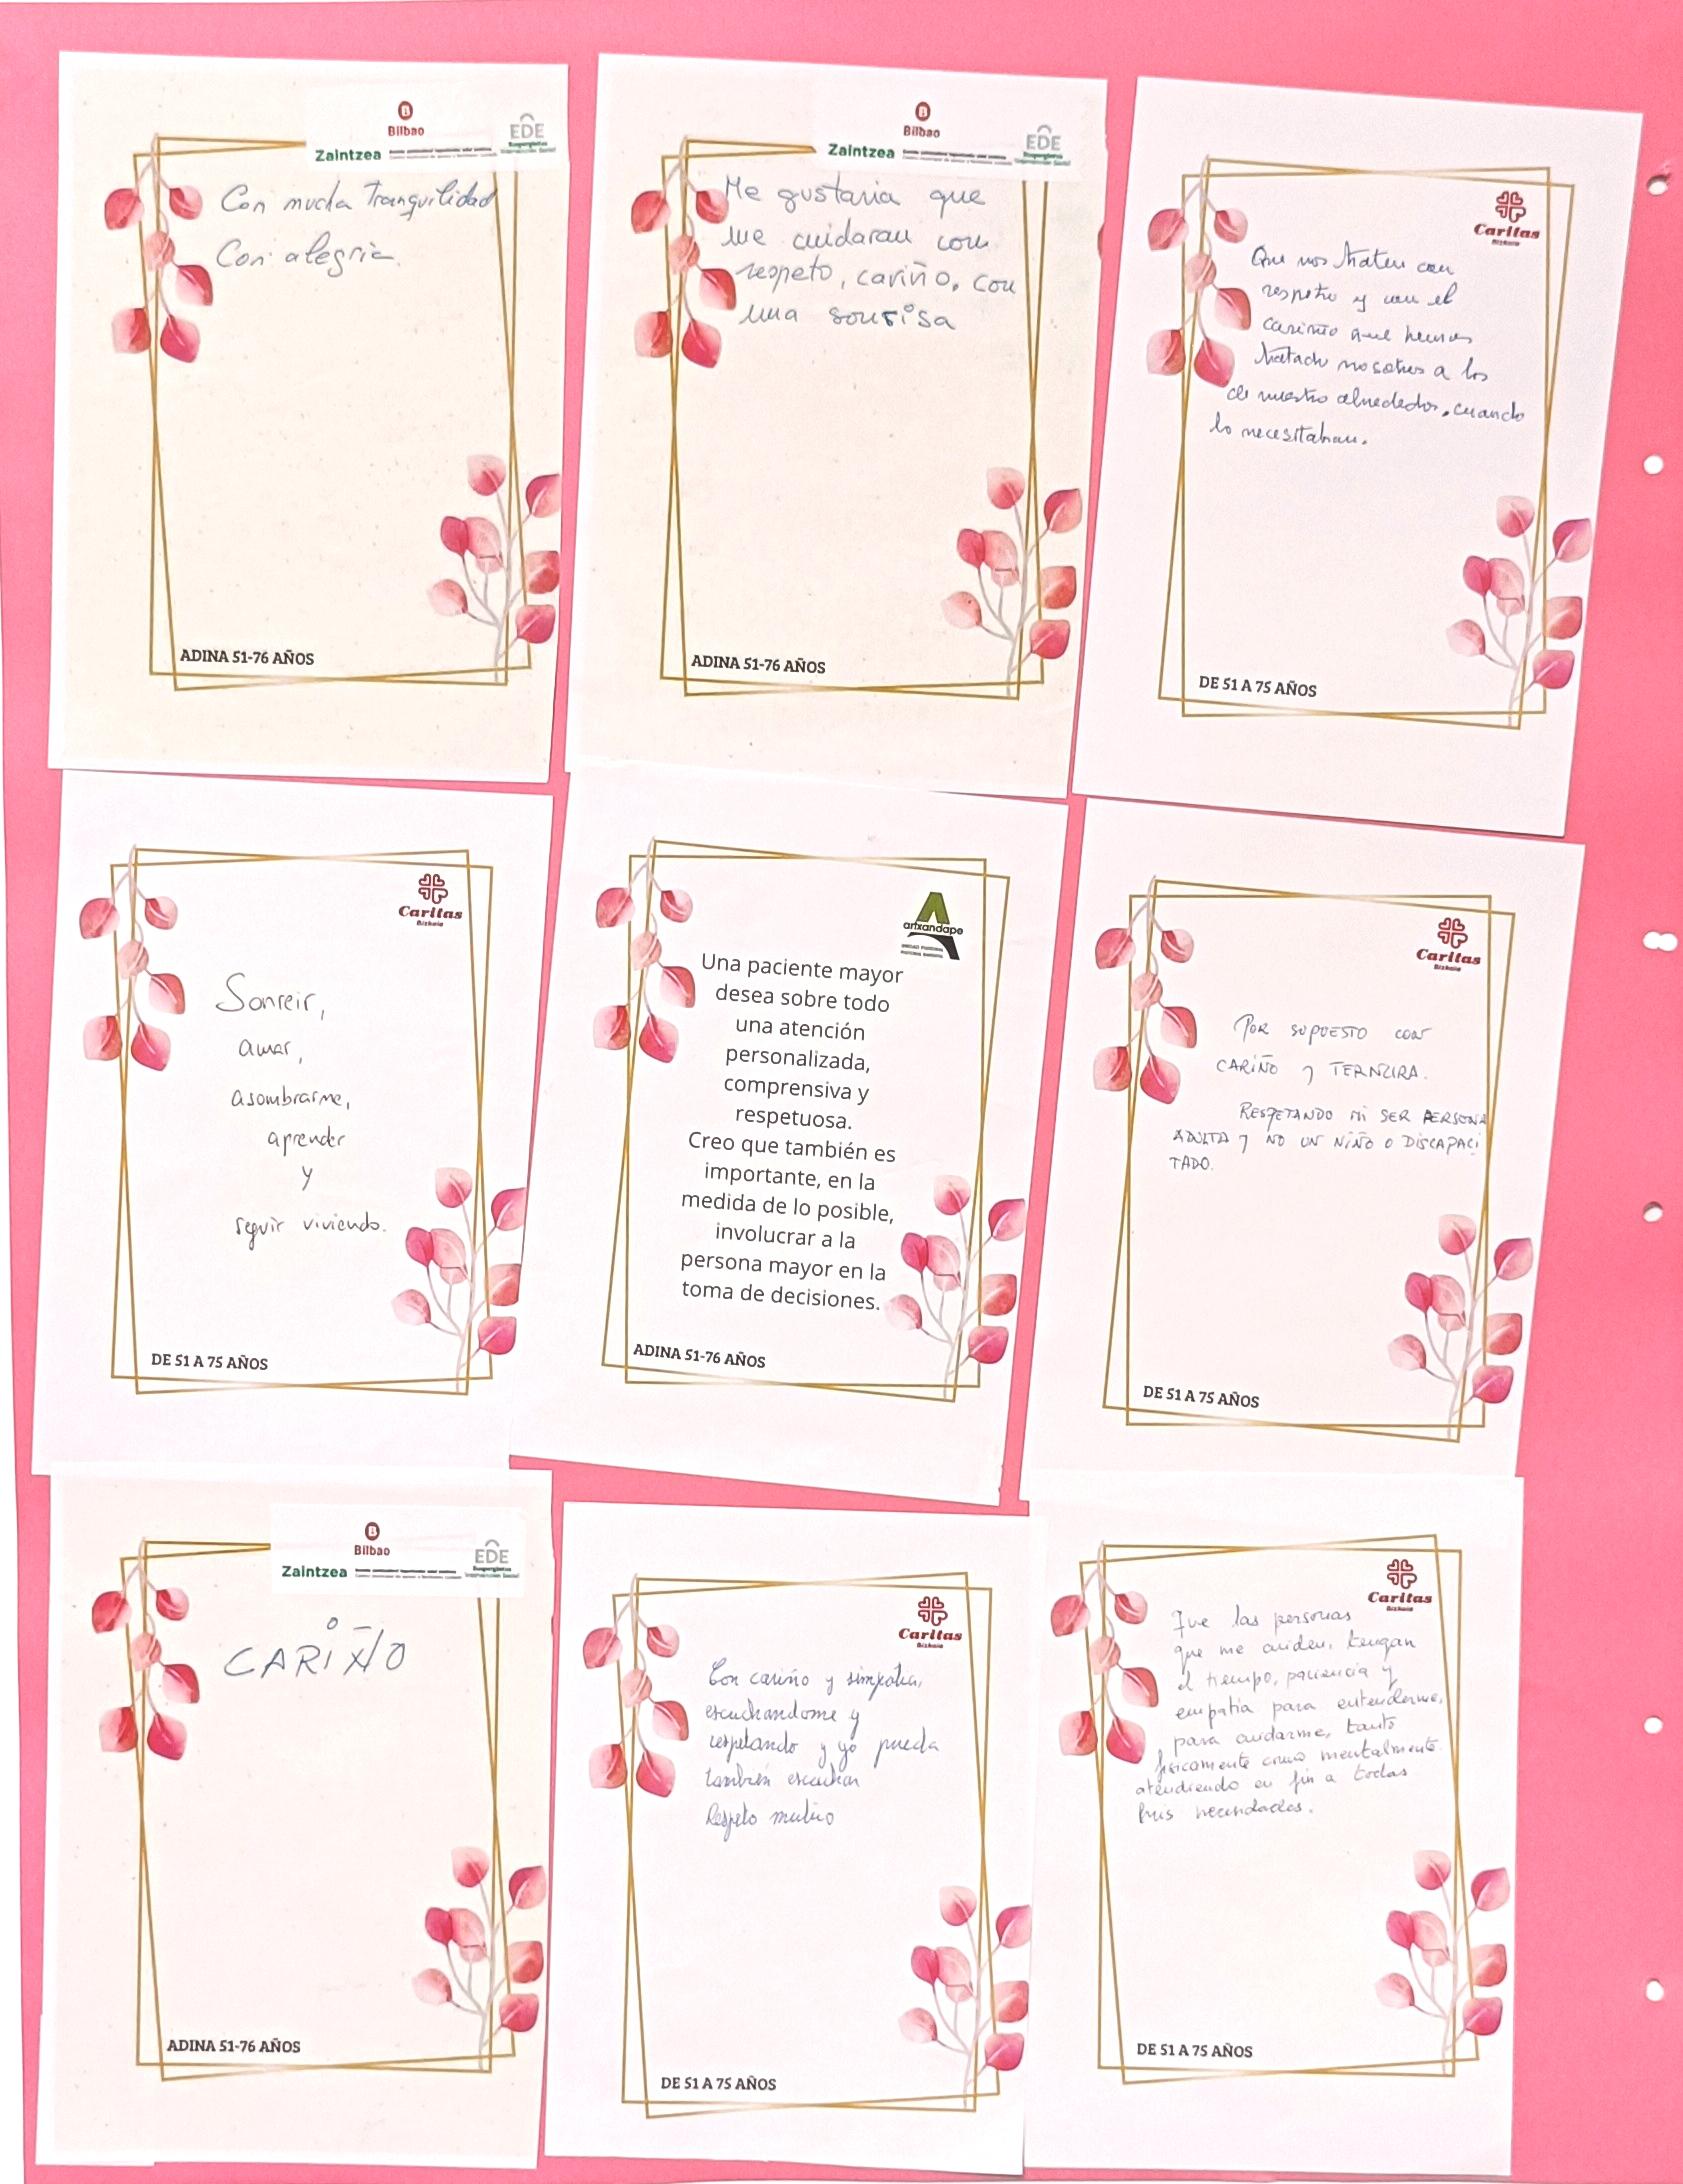 Bilbao
Zaintzea
EDE
Con mucha Tranquilidad
Con alegria.
ADINA 51-76 AÑOS
Bilbao
Zaintzea
EDE
Me gustaria que
me cuidaran con
respeto, cariño, con
una sonrisa
ADINA 51-76 AÑOS
Caritas
Bizkaia
Que nos traten con
respeto y con el
cariño que hemos
tratado nosotros a los
de nuestro alrededor, cuando
lo necesitaban.
DE 51 A 75 AÑOS
Caritas
Bizkaia
Sonreir,
amar,
asombrarme,
aprender
y
seguir viviendo.
DE 51 A 75 AÑOS
artxandape
Una paciente mayor
desea sobre todo
una atención
personalizada,
comprensiva y
respetuosa.
Creo que también es
importante, en la
medida de lo posible,
involucrar a la
persona mayor en la
toma de decisiones.
ADINA 51-76 AÑOS
Caritas
Bizkaia
POR SUPUESTO CON
CARIÑO Y TERNURA.
RESPETANDO MI SER PERSONA
ADULTA Y NO UN NIÑO O DISCAPACI
TADO.
DE 51 A 75 AÑOS
Bilbao
Zaintzea
EDE
CARIÑO
ADINA 51-76 AÑOS
Caritas
Bizkaia
Con cariño y simpatia,
escuchandome y
respetando y yo pueda
también escuchar
Respeto mutuo
DE 51 A 75 AÑOS
Caritas
Bizkaia
Que las personas
que me cuiden, tengan
el tiempo, paciencia y
empatía para entenderme,
para cuidarme, tanto
físicamente como mentalmente
atendiendo en fin a todas
mis necesidades.
DE 51 A 75 AÑOS